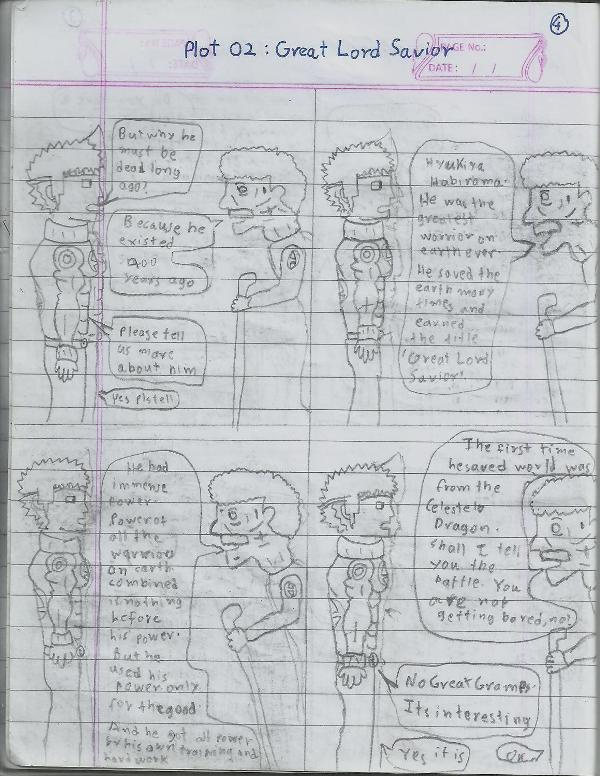 4
Plot 02 : Great Lord Savior
PAGE No.:
DATE: / /
But why he
must be
dead long
ago?
Because he
existed
400
years ago
Please tell
us more
about him
Yes pls tell
Hyukira
Habirama.
He was the
greatest
warrior on
earth ever
He saved the
earth many
times and
earned
the title
'Great Lord
Savior'.
He had
immense
power.
Power of
all the
warriors
on earth
combined
is nothing
before
his power.
But he
used his
power only
for the good
And he got all power
by his own training and
hard work
The first time
he saved world was
from the
Celestelo
Dragon.
Shall I tell
you the
battle. You
are not
getting bored, no?
No Great Gramps.
Its interesting
Yes it is
Ok